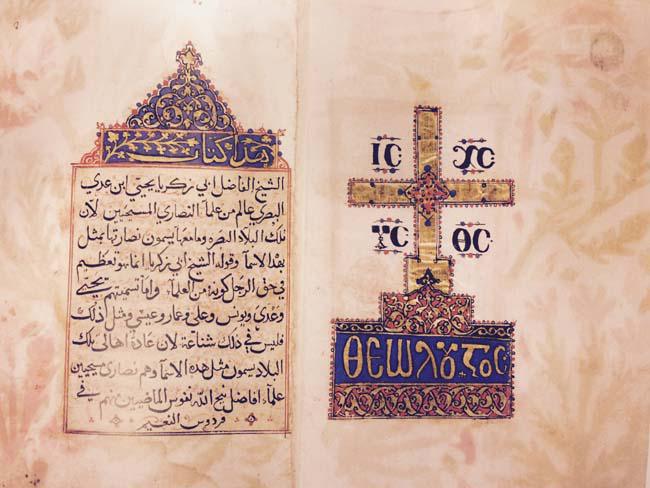 هذا كتاب
الشيخ الفاضل ابي زكريا يحيي ابن عدي
البصري عالم من علماء النصاري المسيحيين لان
تلك البلاد البصره وما معها يسمون نصارتها بمثل
هذا الاسماء وقوله الشيخ ابي زكريا انما هو تعظيم
في حق الرجل كونه من العلماء واما تسميتهم يحيي
وعدي ويونس وعلي وعمار وعيسي ومثل ذلك
فليس في ذلك شناعة لان عادة اهالي تلك
البلاد يسمون مثل هذه الاسماء وهم نصاري مسيحيين
علماء افاضل نيح الله نفوس الماضيين منهم في
فردوس النعيم
ⲒⲤ ⲬⲤ
ⲨⲤ ⲐⲤ